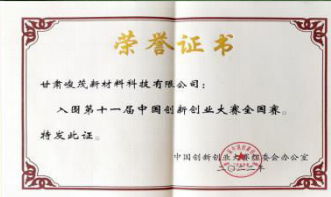 荣誉证书
甘肃峻茂新材料科技有限公司：
入围第十一届中国创新创业大赛全国赛。
特发此证。
中国创新创业大赛组委会办公室
二〇二二年